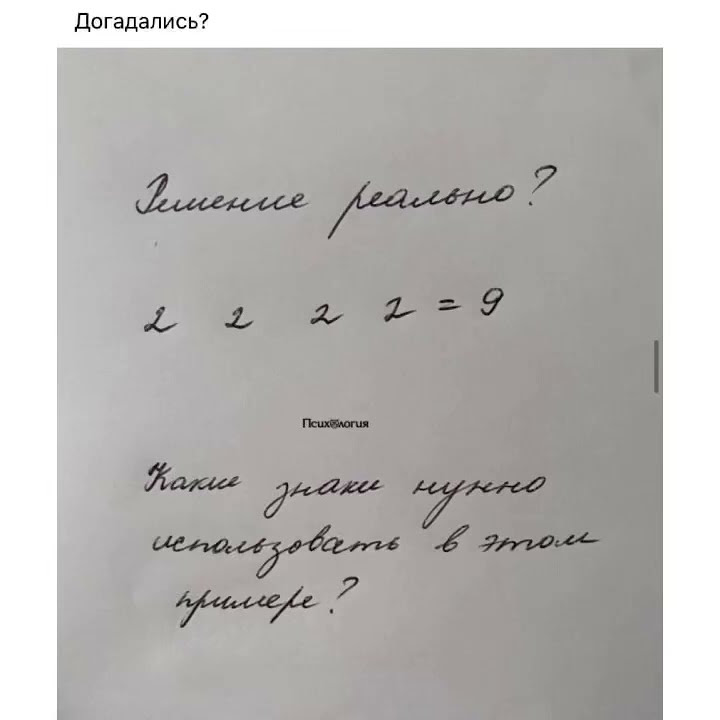 Догадались?
Решение реально?
2 2 2 2 = 9
Психология
Какие знаки нужно
использовать в этом
примере?